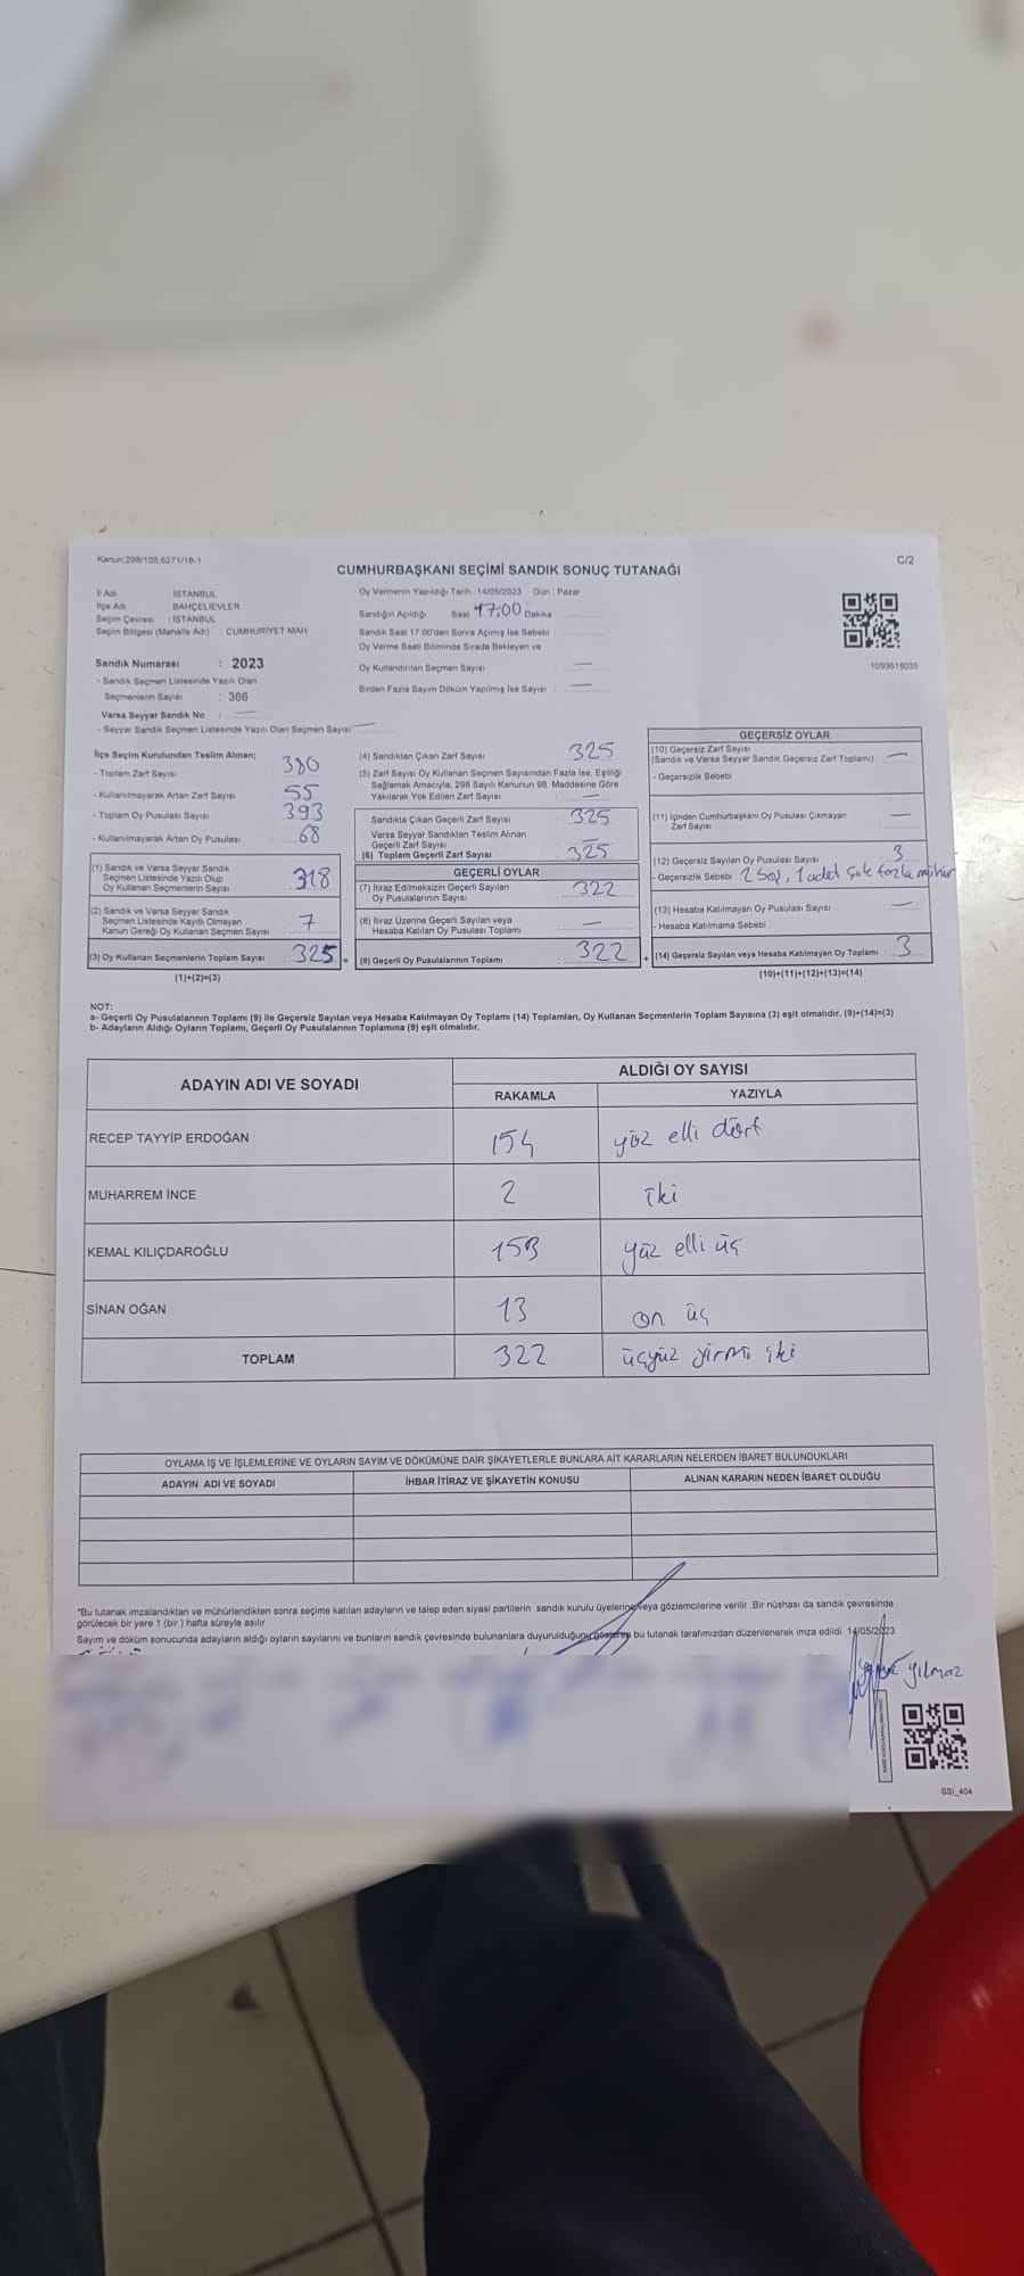 Kanun:298/105,6271/18-1
C/2
CUMHURBAŞKANI SEÇİMİ SANDIK SONUÇ TUTANAĞI
İl Adı : İSTANBUL
İlçe Adı : BAHÇELİEVLER
Seçim Çevresi : İSTANBUL
Seçim Bölgesi (Mahalle Adı) : CUMHURİYET MAH.
Sandık Numarası : 2023
- Sandık Seçmen Listesinde Yazılı Olan
Seçmenlerin Sayısı : 366
Varsa Seyyar Sandık No : —
- Seyyar Sandık Seçmen Listesinde Yazılı Olan Seçmen Sayısı —
Oy Vermenin Yapıldığı Tarih : 14/05/2023 Gün : Pazar
Sandığın Açıldığı Saat 17:00 Dakika
Sandık Saat 17.00'den Sonra Açılmış İse Sebebi
Oy Verme Saati Bitiminde Sırada Bekleyen ve
Oy Kullandırılan Seçmen Sayısı : —
Birden Fazla Sayım Döküm Yapılmış İse Sayısı : —
1093619035
İlçe Seçim Kurulundan Teslim Alınan;
- Toplam Zarf Sayısı 380
- Kullanılmayarak Artan Zarf Sayısı 55
- Toplam Oy Pusulası Sayısı 393
- Kullanılmayarak Artan Oy Pusulası 68
(1) Sandık ve Varsa Seyyar Sandık
Seçmen Listesinde Yazılı Olup
Oy Kullanan Seçmenlerin Sayısı 318
(2) Sandık ve Varsa Seyyar Sandık
Seçmen Listesinde Kayıtlı Olmayan
Kanun Gereği Oy Kullanan Seçmen Sayısı 7
(3) Oy Kullanan Seçmenlerin Toplam Sayısı 325
(1)+(2)=(3)
(4) Sandıktan Çıkan Zarf Sayısı 325
(5) Zarf Sayısı Oy Kullanan Seçmen Sayısından Fazla İse, Eşitliği
Sağlamak Amacıyla, 298 Sayılı Kanunun 98. Maddesine Göre
Yakılarak Yok Edilen Zarf Sayısı : —
Sandıkta Çıkan Geçerli Zarf Sayısı 325
Varsa Seyyar Sandıktan Teslim Alınan
Geçerli Zarf Sayısı
(6) Toplam Geçerli Zarf Sayısı 325
GEÇERLİ OYLAR
(7) İtiraz Edilmeksizin Geçerli Sayılan
Oy Pusulalarının Sayısı 322
(8) İtiraz Üzerine Geçerli Sayılan veya
Hesaba Katılan Oy Pusulası Toplamı : —
(9) Geçerli Oy Pusulalarının Toplamı : 322
GEÇERSİZ OYLAR
(10) Geçersiz Zarf Sayısı
(Sandık ve Varsa Seyyar Sandık Geçersiz Zarf Toplamı) —
- Geçersizlik Sebebi
(11) İçinden Cumhurbaşkanı Oy Pusulası Çıkmayan
Zarf Sayısı —
(12) Geçersiz Sayılan Oy Pusulası Sayısı 3
- Geçersizlik Sebebi 2 boş, 1 adet çok fazla mühür
(13) Hesaba Katılmayan Oy Pusulası Sayısı —
- Hesaba Katılmama Sebebi
(14) Geçersiz Sayılan veya Hesaba Katılmayan Oy Toplamı 3
(10)+(11)+(12)+(13)=(14)
NOT:
a- Geçerli Oy Pusulalarının Toplamı (9) ile Geçersiz Sayılan veya Hesaba Katılmayan Oy Toplamı (14) Toplamları, Oy Kullanan Seçmenlerin Toplam Sayısına (3) eşit olmalıdır. (9)+(14)=(3)
b- Adayların Aldığı Oyların Toplamı, Geçerli Oy Pusulalarının Toplamına (9) eşit olmalıdır.
ADAYIN ADI VE SOYADI ALDIĞI OY SAYISI
RAKAMLA YAZIYLA
RECEP TAYYİP ERDOĞAN 154 yüz elli dört
MUHARREM İNCE 2 iki
KEMAL KILIÇDAROĞLU 153 yüz elli üç
SİNAN OĞAN 13 on üç
TOPLAM 322 üçyüz yirmi iki
OYLAMA İŞ VE İŞLEMLERİNE VE OYLARIN SAYIM VE DÖKÜMÜNE DAİR ŞİKAYETLERLE BUNLARA AİT KARARLARIN NELERDEN İBARET BULUNDUKLARI
ADAYIN ADI VE SOYADI İHBAR İTİRAZ VE ŞİKAYETİN KONUSU ALINAN KARARIN NEDEN İBARET OLDUĞU
"Bu tutanak imzalandıktan ve mühürlendikten sonra seçime katılan adayların ve talep eden siyasi partilerin sandık kurulu üyelerine veya gözlemcilerine verilir. Bir nüshası da sandık çevresinde
görülecek bir yere 1 (bir ) hafta süreyle asılır.
Sayım ve döküm sonucunda adayların aldığı oyların sayılarını ve bunların sandık çevresinde bulunanlara duyurulduğunu gösteren bu tutanak tarafımızdan düzenlenerek imza edildi. 14/05/2023
yılmaz
GSI_404